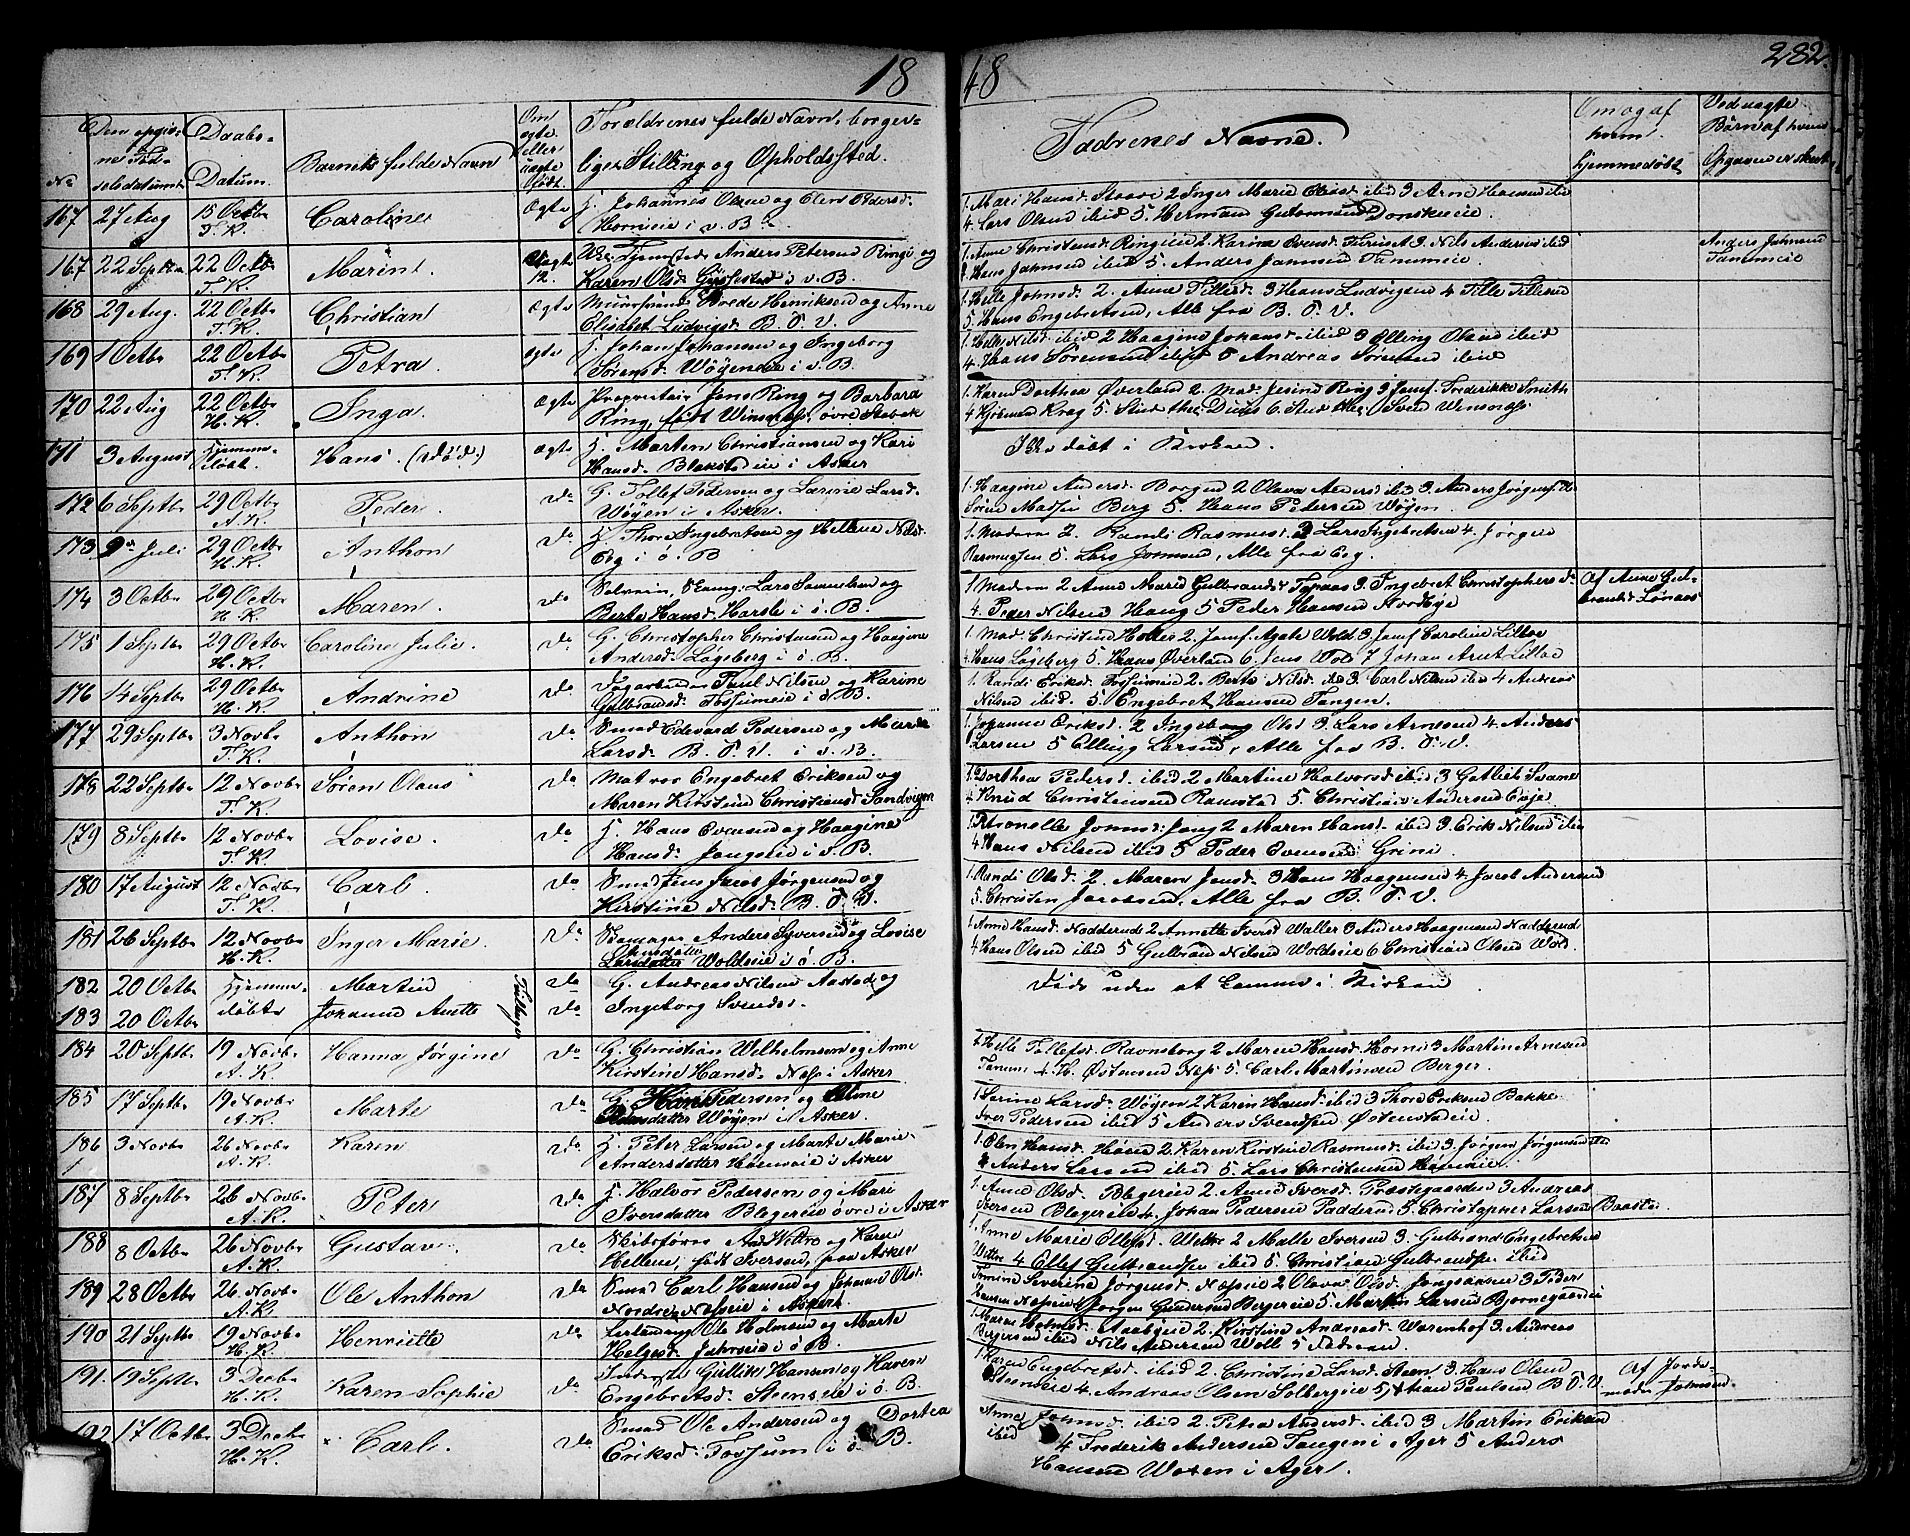 18 48 282.
No
Den opgiv-
ne Fød-
selsdatum
Daabs-
Datum.
Barnets fulde Navn
Om
ægte
eller
uægte
født.
Forældrenes fulde Navn, borger-
lige Stilling og Opholdssted.
Fadrenes Navne.
Om og af
hvem
hjemmedøbt
Ved uægte
Børn af hvem
Opgaven er skeet
167 27 Aug 15 Octbr T. K. Caroline Ægte H. Johannes Olsen og Eleni Pedersd.
Hornieie i v. B.
1. Mari Hansd. 2 Inger Marie ibid 3 Arne Hansen ibid
4. Lars Olsen ibid 5. Herman Gutormsen Donskieie.
167 22 Septbr 22 Octbr T. K. Marin Uægte 12. Anders Petersen Ringi og
Karen Olsd. i v. B.
1. Anne Christensd. Ringieie 2. Karine Evensd. 3. Nils Andersen ibid
4. Hans Johnsen ibid 5. Anders Johnsen Tanumeie
Anders Johnsen
Tanumeie
168 29 Aug. 22 Octbr T. K. Christian ægte Brede Henriksen og Anne
Elisabet Ludvigsd. B. O. V.
1. Helle Johnsd. 2. Anne Tillesd. 3 Hans Ludvigsen 4 Tille Tillesen
5. Hans Engebretsen, Alle fra B. O. V.
169 1 Octbr 22 Octbr T. K. Petra. ægte H. Johan Johansen og Ingeborg
Sørensd. Wøyeneie i v. B.
1. Helle Nilsd. ibid 2 Haagine Johansd. ibid 3 Elling Olsen ibid
4. Hans Sørensen ibid 5 Andreas Sørensen ibid
170 22 Aug 22 Octbr H. K. Inga. Ægte Proprietær Jens Ring og Barbara
Ring, født Winsnæs, øvre Stabek
1. Karen Dorthea Øverland 2. Mad. Jesine Ring 3 Jomf. Frederikke Smith
4 Hjelmen Krag 5. Stud. theol. 6. Stud. theol. Svend Winsnæs
171 3 August Hjemme-
døbt. Hans. (død) ægte H. Morten Christiansen og Kari
Hansd. Blakstadeie i Asker
Ikke døbt i Kirken.
172 6 Septbr 29 Octbr A. K. Peder do G. Tollef Pedersen og Larine Larsd.
Wøyen i Asker.
1. Haagine Andersd. Borgen 2 Olava Andersd. ibid 3. Anders Jørgensen
Søren Madsen Berg 5. Hans Pedersen Wøyen.
173 9de Juli 29 Octbr H. K. Anthon do H. Thore Ingebretsen og Hellene Nilsd.
Eeg i ø. B
1. Moderen 2. Randi Rasmusd. 3 Lars Ingebretsen 4. Jørgen
Rasmussen 5. Lars Jonsen, Alle fra Eeg.
174 3 Octbr 29 Octbr H. K. Maren. do Selveier, Lars Samuelsen og
Berte Hansd. Harsle i ø. B.
1 Moderen 2 Anne Marie Gulbrandsd. 3. Ingebret Christophersen do
4. Peder Nilsen Haug 5 Peder Hansen Nordbye
Af Anne Gul-
brandsd. Lønaas
175 1 Septbr 29 Octbr H. K. Caroline Julie. do G. Christopher Christensen og Haagine
Andersd. Løgeberg i ø. B.
1. Mad. Christine Holter 2. Jomf. Agate Wold 3. Jomf. Caroline Lilloe
4. Hans Løgeberg 5. Hans Øverland 6. Jens Wold 7 Johan Arnt Lilloe
176 14 Septbr 29 Octbr H. K. Andrine do Dagarbeider Paul Nilsen og Karine
Gulbransd. Fossumeie i ø. B.
1. Randi Eriksd. Fossumeie 2. Berte Nilsd. ibid 3. Carl Nilsen ibid 4 Andreas
Nilsen ibid. 5. Engebret Hansen Tangen.
177 29 Septbr 3 Novbr T. K. Anthon do Smed Edevard Pedersen og Marte
Larsd. B. O. V. i v. B.
1. Johanne Eriksd. 2 Ingeborg Olsd. 3. Lars Arnesen 4. Anders
Larsen 5 Elling Larsen, Alle fra B. O. V.
178 22 Septbr 12 Novbr T. K. Søren Olaus do Matros Engebret Eriksen og
Maren Kirstine Christiansd. Sandvigen
1. Dorthea Pedersd. ibid 2 Martine Halvorsd. ibid 3 Gotlieb Svane
4 Knud Christensen Ramstad 5. Christian Andersen Eeje.
179 8 Septbr 12 Novbr T. K. Lovise. do H. Hans Evensen og Haagine
Hansd. Jongseie i v. B.
1. Petronelle Jonsd. Jong 2. Maren Hansd. ibid 3. Erik Nilsen ibid
4. Hans Nilsen ibid 5 Peder Evensen Grini
180 17 August 12 Novbr T. K. Carl. do Smed Jens Jacob Jørgensen og
Kirstine Nilsd. B. O. V.
1. Randi Olsd. 2. Maren Jensd. 3 Hans Haagensen 4. Jacob Andersen
5. Christen Jacobsen, Alle fra B. O. V.
181 26 Septbr 12 Novbr H. K. Inger Marie. do Anders Syversen og Lovise
Larsdatter Woldseie i ø. B.
1. Anne Hansd. Nadderud 2 Annette Iversd. Waller 3 Anders Haagensen Nadderud
4 Hans Olsen ibid 5 Gulbran Nilsen Woldseie 6 Christian Olsen Wold.
182 20 Octbr Hjemme- Martin do G. Andreas Nilsen Aastad og
183 20 Octbr døbte Johanne Anette Tvillinger do Ingeborg Svendsd.
Døde uden at komme i Kirken
184 20 Septbr 19 Novbr A. K. Hanna Jørgine do G. Christian Wilhelmsen og Anne
Kirstine Hansd. Næs i Asker
1. Helle Tollefsd. Ravnsborg 2 Maren Hansd. Horni 3 Martin Arnesen
Tanum 4. H. Østensen Næs 5. Carl Martinsen Berger.
185 17 Septbr 19 Novbr A. K. Marte do G. Pedersen og
Wøyen i Asker.
1 Larine Larsd. Wøyen 2 Karen Hansd. ibid 3 Thore Eriksen Bakke
Iver Pedersen ibid 5 Anders Svendsen Østenstadeie
186 3 Novbr 26 Novbr A. K. Karen do H. Peter Larsen og Marte Marie
Andersdatter Høneneie i Asker
1. Olea Hansd. Hønen 2 Karen Kirstine Rasmusd. ibid 3. Jørgen Jørgensen ibid
4 Anders Larsen ibid 5. Lars Christensen Høneneie
187 8 Septbr 26 Novbr A. K. Peter do H. Halvor Pedersen og Mari
Iversdatter Blegereie øvre i Asker
1. Anne Olsd. Blegerieie 2. Anne Iversd. Præstegaarden 3 Andreas
Iversen Blegereie 4. Johan Pedersen Padderud 5 Christopher Larsen Baastø.
188 8 Octbr 26 Novbr A. K. Gustav. do Skibsfører And. Wettre og Karen
Hellene, født Iversen, fra Asker
1. Anne Marie Ellefsd. Wettre 2 Malle Iversen 3. Gulbrand Engebretsen
Wettre 4 Ellef Gulbrandsen ibid 5. Christian Gulbrandsen ibid
189 28 Octbr 26 Novbr A. K. Ole Anthon do Smed Carl Hansen og Johanne Olsd.
Nordre Næseie i Asker
Severine Jørgensd. Næseie 2 Olava Olsd. Jongsaasen 3 Peder
Hansen Næseie 4 Jørgen Gundersen Bergereie 5. Martin Larsen Bjørnegaardeie
190 21 Septbr 19 Novbr H. K. Henriette do Ole Holmsen og Marte
Helgesd. Jahrseie i ø. B.
1. Maren Holmsd. 2. Kirstine Andreasd. Warenhof 3. Andreas
Bergersen ibid 4. Nils Andersen Wolle 5 Faderen
191. 19 Septbr 3 Decbr H. K. Karen Sophie do Inderst Gullik Hansen og Karen
Engebretsd. Steenseie i ø. B.
1. Karen Engebretsd. ibid 2. Christine Larsd. Steen 3 Hans Olsen
Steenseie 4. Andreas Olsen Solbergeie 5 Paulsen B. O. V.
Af Jorde-
moder Johnsen
192 17 Octbr 3 Decbr H. K. Carl. do Smed Ole Andersen og Dortea
Eriksd. Fossum i ø. B.
Anne Johnsd. ibid 2. Petra Andersd. ibid 3 Martin Eriksen
ibid 4 Frederik Andersen Tangen i Ager 5 Anders
Hansen Woxen i Ager.